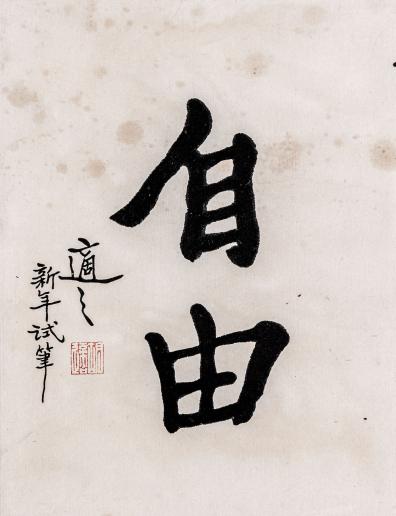 自由
適之
新年試筆